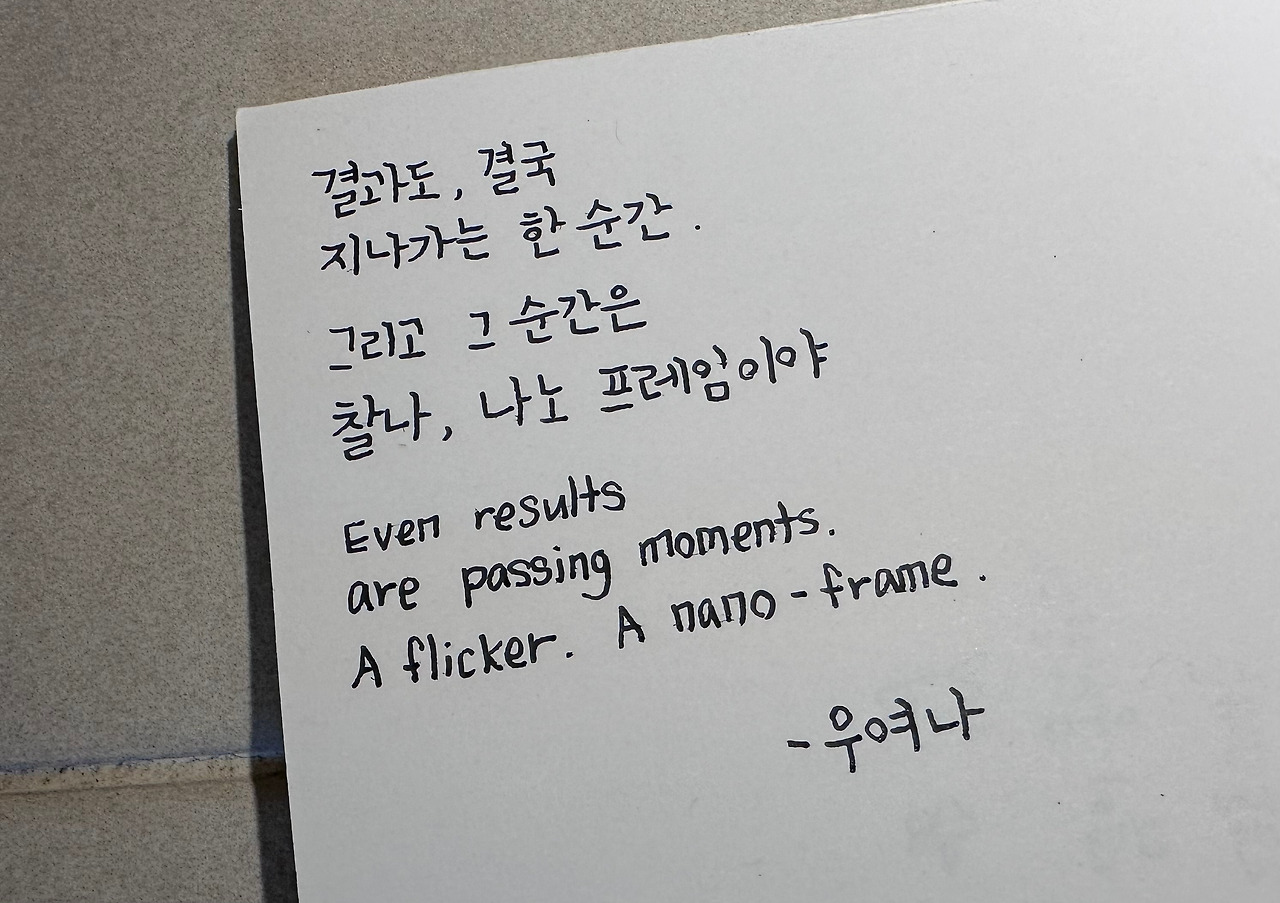 결과도, 결국
지나가는 한 순간.
그리고 그 순간은
찰나, 나노 프레임이야
Even results
are passing moments.
A flicker. A nano-frame.
-우여나